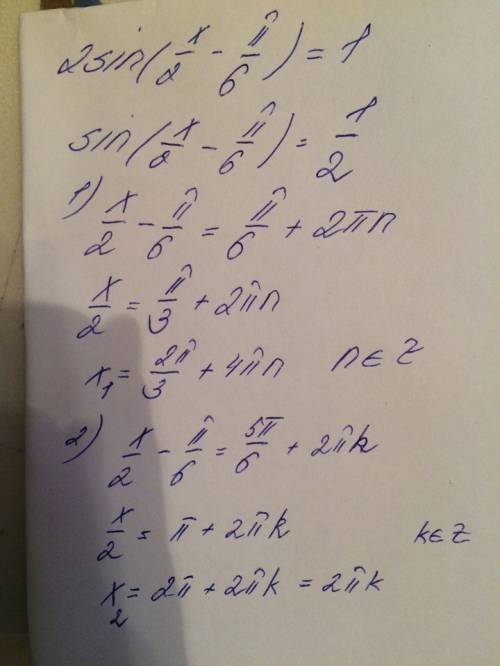 2sin(x/2 - π/6) = 1
sin(x/2 - π/6) = 1/2
1) x/2 - π/6 = π/6 + 2πn
x/2 = π/3 + 2πn
x₁ = 2π/3 + 4πn n∈Z
2) x/2 - π/6 = 5π/6 + 2πk
x/2 = π + 2πk k∈Z
x₂ = 2π + 2πk = 2πk